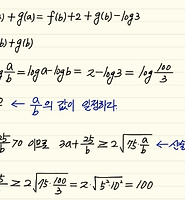 ) + g(a) = f(b) + 2 + g(b) - log3
b) + g(b)
g a/b = log a - log b = 2 - log3 = log 100/3
2 ← a/b 의 값이 일정하다.
25/b > 0 이므로 3a + 25/b ≥ 2√(75· a/b) ←
≥ 2√(75· 100/3) = 2√(5²10²) = 100